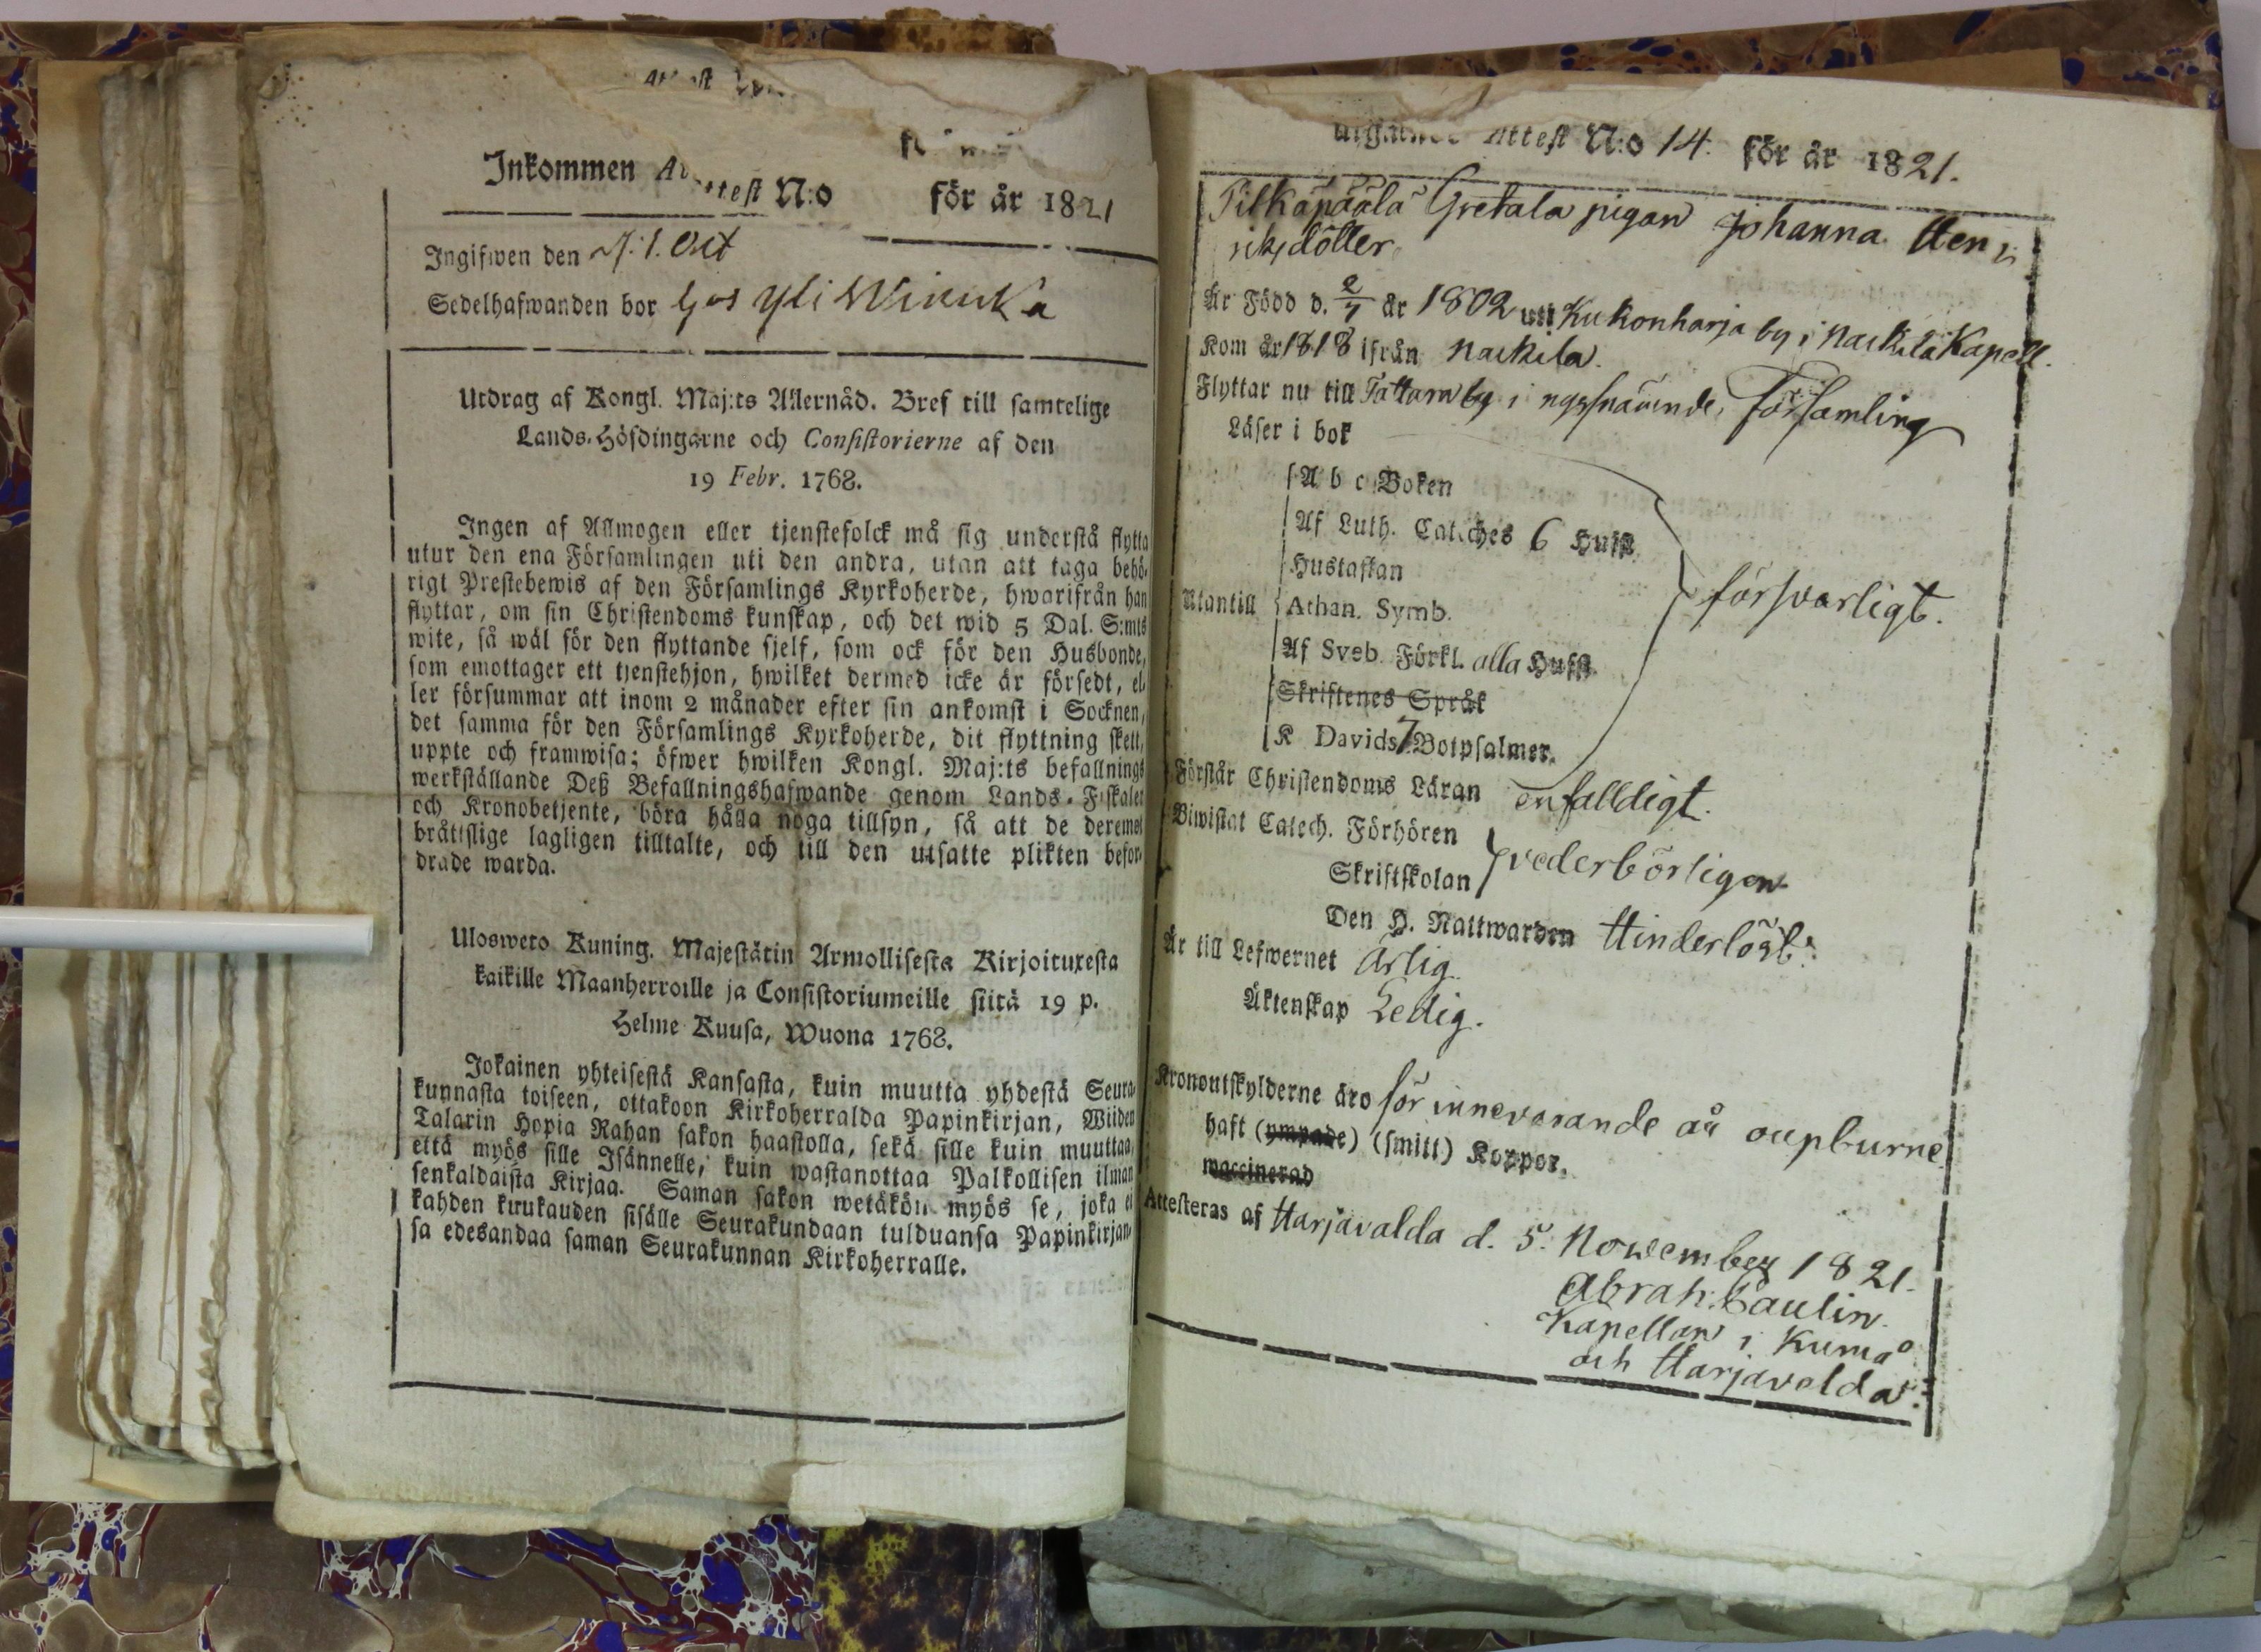 Inkommen Attest N:o för år 1821
Ingifwen den
Sedelhafwanden bor hos Yli Winnka
Utdrag af Kongl. Maj:ts Allernåd. Bref till samtelige
Lands-Höfdingarne och Consistorierne af den
19 Febr. 1768.
Ingen af Allmogen eller tjenstefolck må sig understå flytta
utur den ena Församlingen uti den andra, utan att taga behö-
rigt Prestebewis af den Församlings Kyrkoherde, hwarifrån han
flyttar, om sin Christendoms kunskap, och det wid 5 Dal. S:mts
wite, så wäl för den flyttande sjelf, som ock för den Husbonde,
som emottager ett tjenstehjon, hwilket dermed icke är försedt, el-
ler försummar att inom 2 månader efter sin ankomst i Socknen,
det samma för den Församlings Kyrkoherde, dit flyttning skett,
uppte och framwisa; öfwer hwilken Kongl. Maj:ts befallnings
werkställande Deß Befallningshafwande genom Lands-Fiskaler
och Kronobetjente, böra hålla noga tillsyn, så att de deremot
bråttslige lagligen tilltalte, och till den utsatte plikten befor-
drade warda.
Ulosweto Kuning. Majestätin Armollisesta Kirjoituxesta
kaikille Maanherroille ja Consistoriumeille siitä 19 p.
Helme Kuusa, Wuona 1768.
Jokainen yhteisestä Kansasta, kuin muutta yhdestä Seura-
kunnasta toiseen, ottakoon Kirkoherralda Papinkirjan, Wiiden
Talarin Hopia Rahan sakon haastolla, sekä sille kuin muuttaa,
että myös sille Isännelle, kuin wastanottaa Palkollisen ilman
senkaldaista Kirjaa. Saman sakon wetäkön myös se, joka ei
kahden kuukauden sisälle Seurakundaan tulduansa Papinkirjan-
sa edesandaa saman Seurakunnan Kirkoherralle.
Utgående Attest N:o 14. för år 1821.
Pitkäpäälä Gretala pigan Johanna Hen
riksdotter
Är Född d. 2/7 år 1802 uti Kukonharja by i Nackila Kapell.
Kom år 1818 ifrån Nackila.
Flyttar nu till Tattara by i nyssnämnde Församling
Läser i bok
A b c Boken
Af Luth. Catches 6 Hufst.
Hustaflan
Utantill Athan. Symb. försvarligt.
Af Sveb. Förkl. alla Hufst.
Skriftenes Språk
K Davids 7 Botpsalmer.
Förstår Christendoms Läran enfalldigt.
Biwistat Catech. Förhören
Skriftskolan vederbörligen
Den H. Nattwarden Hinderlöst.
Är till Lefwernet Ärlig.
Äktenskap Ledig.
Kronoutskylderne äro för innevarande år oupburne.
haft (ympade) (smitt) Koppor.
waccinerad
Attesteras af Harjavalda d. 5. November 1821.
Abrah. Paulin.
Kapellan i Kumo
och Harjavalda.